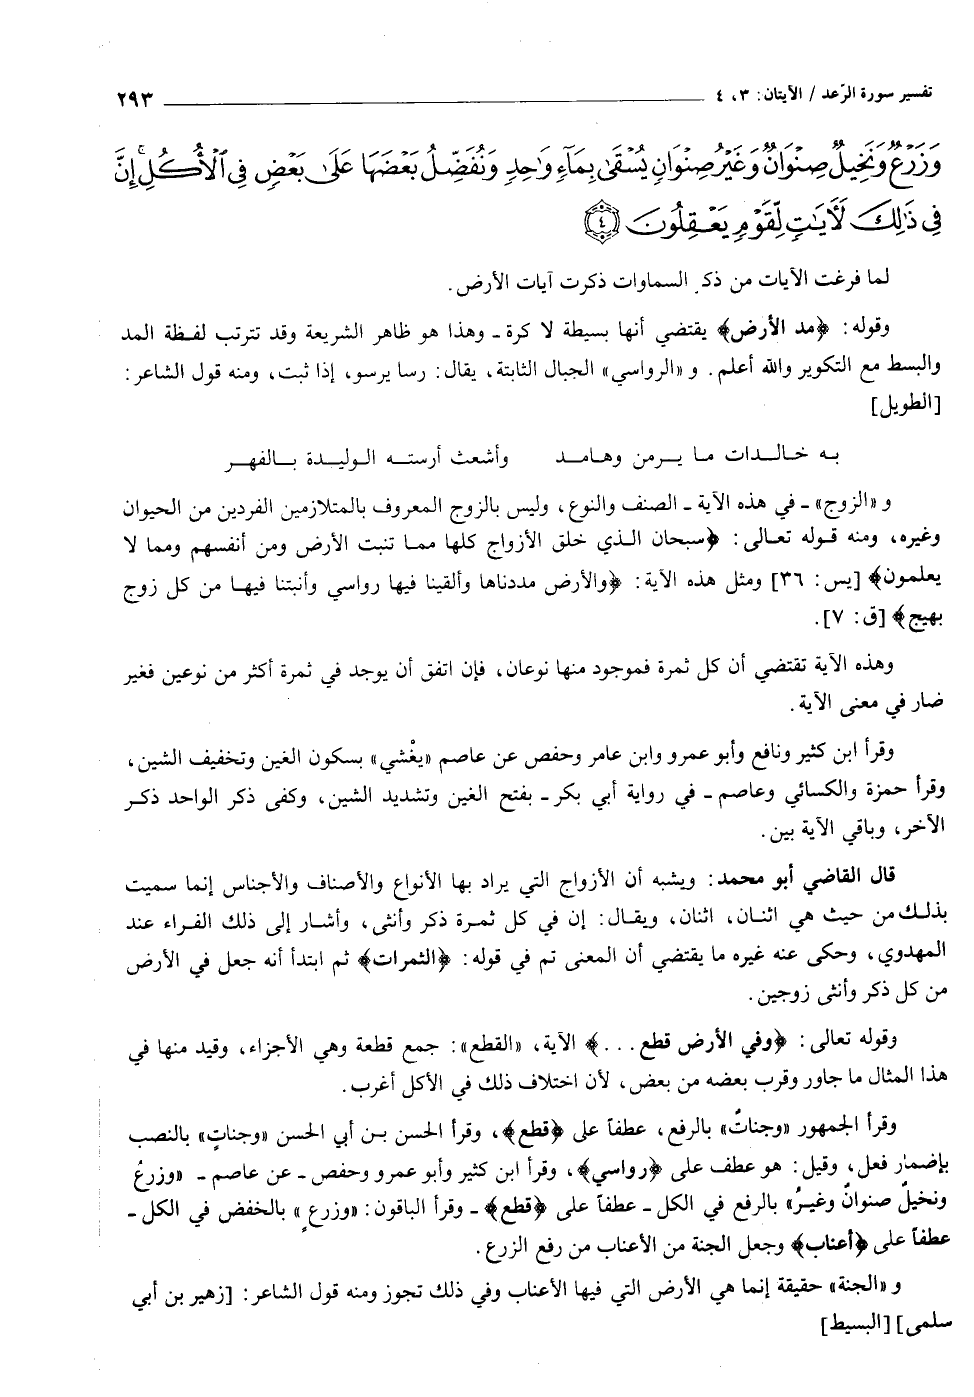 تفسير سورة الرّعد / الآيتان: ٣، ٤ ٢٩٣
وَزَرْعٌ وَنَخِيلٌ صِنْوَانٌ وَغَيْرُ صِنْوَانٍ يُسْقَىٰ بِمَآءٍ وَٰحِدٍ وَنُفَضِّلُ بَعْضَهَا عَلَىٰ بَعْضٍ فِى ٱلْأُكُلِ ۚ إِنَّ
فِى ذَٰلِكَ لَآيَـٰتٍ لِّقَوْمٍ يَعْقِلُونَ ﴿٤﴾
لما فرغت الآيات من ذكر السماوات ذكرت آيات الأرض.
وقوله: ﴿مد الأرض﴾ يقتضي أنها بسيطة لا كرة ـ وهذا هو ظاهر الشريعة وقد تترتب لفظة المد
والبسط مع التكوير والله أعلم. و «الرواسي» الجبال الثابتة، يقال: رسا يرسو، إذا ثبت، ومنه قول الشاعر:
[الطويل]
به خالدات ما يرمن وهامد وأشعث أرسته الوليدة بالفهر
و «الزوج» ـ في هذه الآية ـ الصنف والنوع، وليس بالزوج المعروف بالمتلازمين الفردين من الحيوان
وغيره، ومنه قوله تعالى: ﴿سبحان الذي خلق الأزواج كلها مما تنبت الأرض ومن أنفسهم ومما لا
يعلمون﴾ [يس: ٣٦] ومثل هذه الآية: ﴿والأرض مددناها وألقينا فيها رواسي وأنبتنا فيها من كل زوج
بهيج﴾ [ق: ٧].
وهذه الآية تقتضي أن كل ثمرة فموجود منها نوعان، فإن اتفق أن يوجد في ثمرة أكثر من نوعين فغير
ضار في معنى الآية.
وقرأ ابن كثير ونافع وأبو عمرو وابن عامر وحفص عن عاصم «يغْشي» بسكون الغين وتخفيف الشين،
وقرأ حمزة والكسائي وعاصم ـ في رواية أبي بكر ـ بفتح الغين وتشديد الشين، وكفى ذكر الواحد ذكر
الآخر، وباقي الآية بين.
قال القاضي أبو محمد: ويشبه أن الأزواج التي يراد بها الأنواع والأصناف والأجناس إنما سميت
بذلك من حيث هي اثنان، اثنان، ويقال: إن في كل ثمرة ذكر وأنثى، وأشار إلى ذلك الفراء عند
المهدوي، وحكى عنه غيره ما يقتضي أن المعنى تم في قوله: ﴿الثمرات﴾ ثم ابتدأ أنه جعل في الأرض
من كل ذكر وأنثى زوجين.
وقوله تعالى: ﴿وفي الأرض قطع . . .﴾ الآية، «القطع»: جمع قطعة وهي الأجزاء، وقيد منها في
هذا المثال ما جاور وقرب بعضه من بعض، لأن اختلاف ذلك في الأكل أغرب.
وقرأ الجمهور «وجناتٌ» بالرفع، عطفاً على ﴿قطع﴾، وقرأ الحسن بن أبي الحسن «وجناتٍ» بالنصب
بإضمار فعل، وقيل: هو عطف على ﴿رواسي﴾، وقرأ ابن كثير وأبو عمرو وحفص ـ عن عاصم ـ «وزرعٌ
ونخيلٌ صنوانٌ وغيرُ» بالرفع في الكل ـ عطفاً على ﴿قطع﴾ ـ وقرأ الباقون: «وزرعٍ» بالخفض في الكل ـ
عطفاً على ﴿أعناب﴾ وجعل الجنة من الأعناب من رفع الزرع.
و «الجنة» حقيقة إنما هي الأرض التي فيها الأعناب وفي ذلك تجوز ومنه قول الشاعر: [زهير بن أبي
سلمى] [البسيط]